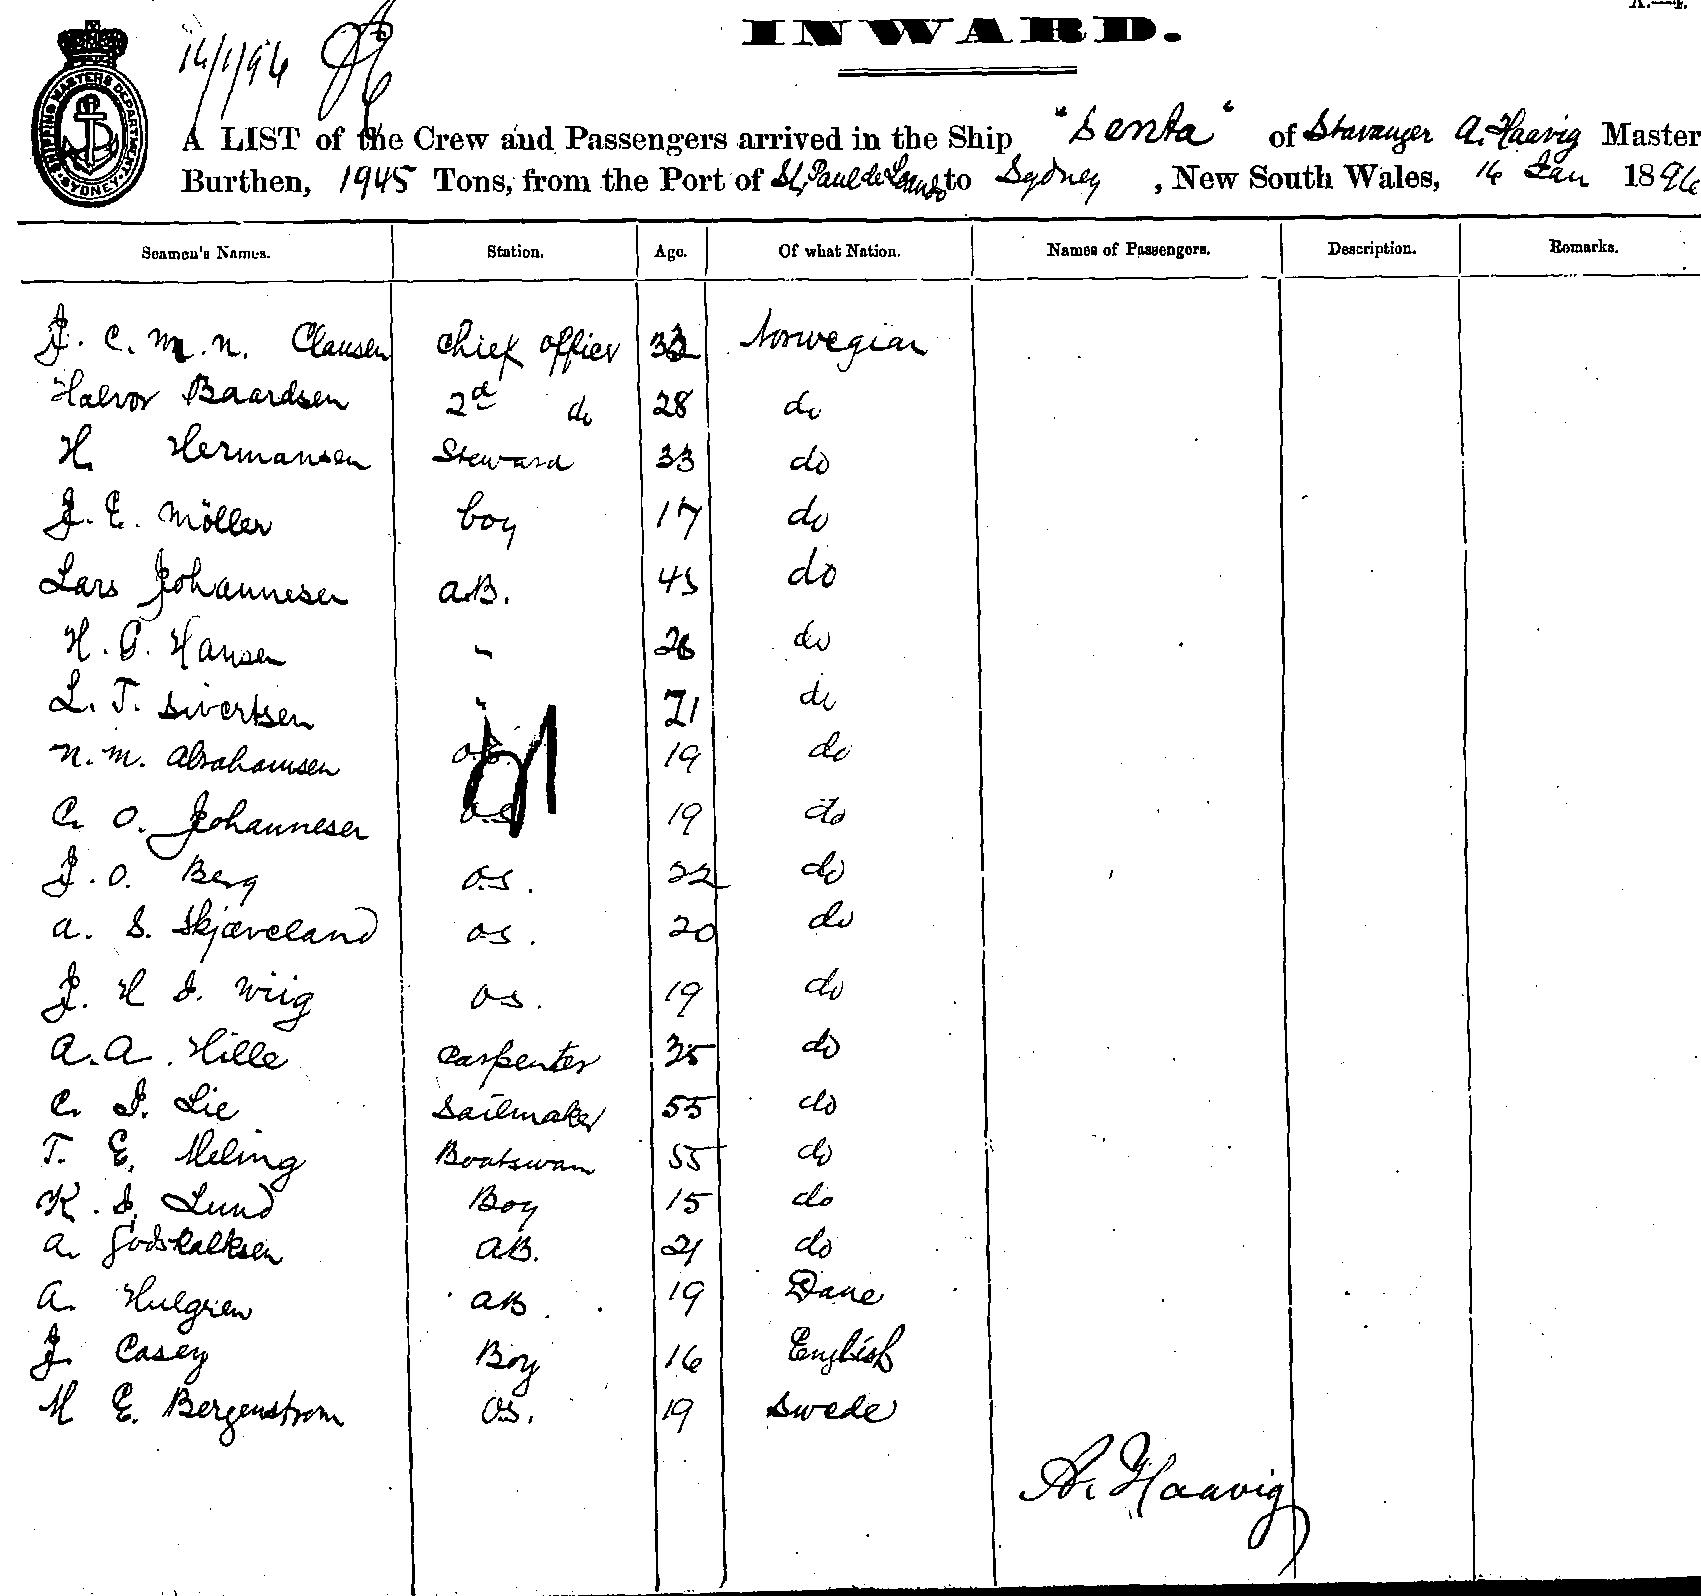 A.—4.
INWARD.
14/1/96
SHIPPING MASTERS DEPARTMENT SYDNEY
A LIST of the Crew and Passengers arrived in the Ship "Senta" of Stavanger A. Haavig Master
Burthen, 1945 Tons, from the Port of St. Paul de to Sydney, New South Wales, 14 Jan 1896
Seamen's Names. Station. Age. Of what Nation. Names of Passengers. Description. Remarks.
J. C. M. N. Clausen Chief Officer Norwegian
Halvor Baardsen 2d do 28 do
H. Hermansen Steward 33 do
J. E. Möller boy 17 do
Lars Johannesen a.B. 43 do
H. Hansen " 26 do
L. T. Sivertsen " 21 do
N. M. Abrahamsen 19 do
C. O. Johannesen O.S 19 do
J. O. Berg O.S. 22 do
A. S. Skjæveland OS. 20 do
J. H S. Wiig OS. 19 do
A. A. Hille Carpenter 35 do
C. J. Lie Sailmaker 55 do
T. E. Meling Boatswan 55 do
K. S. Lund Boy 15 do
A. Godskalksen AB. 21 do
A. Hulgren AB 19 Dane
J. Casey Boy 16 English
M E. Bergenstrom OS. 19 Swede
A. Haavig